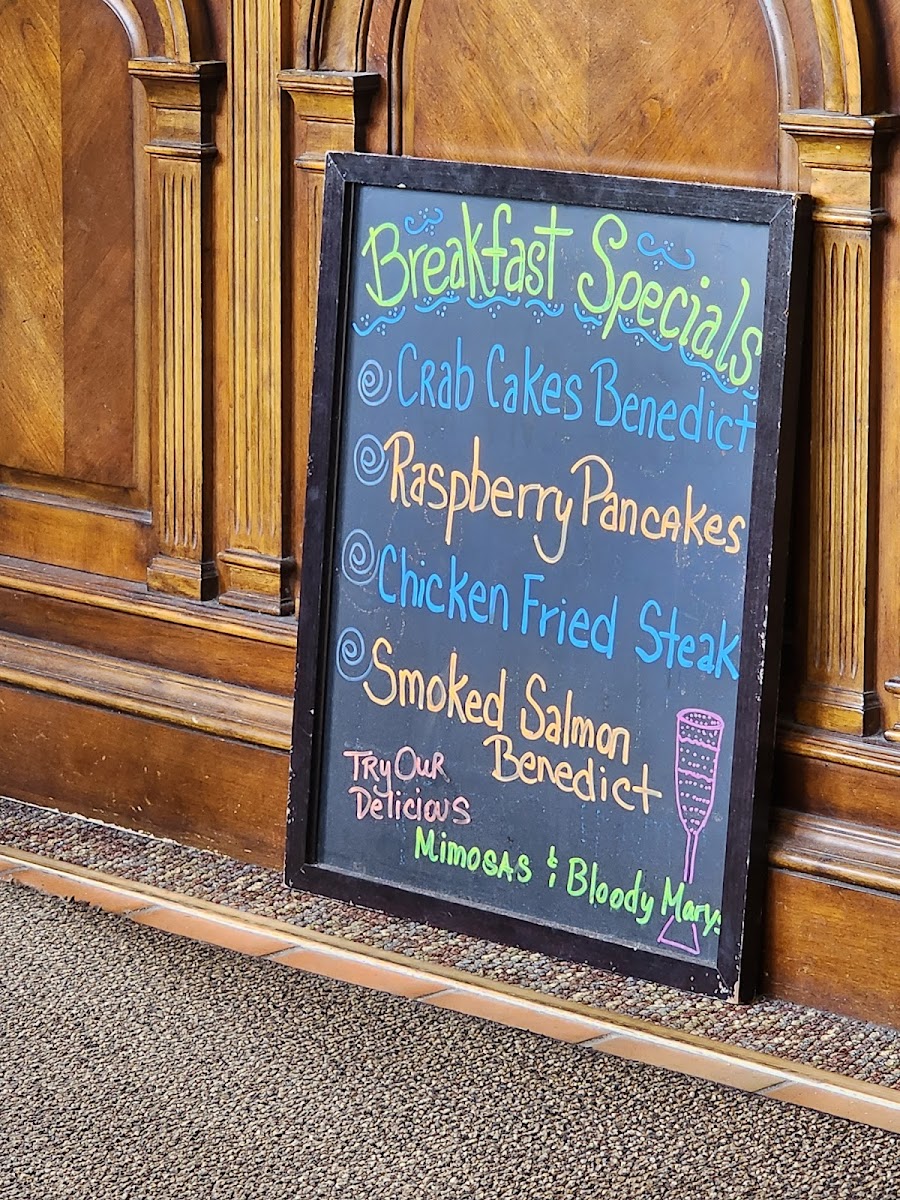 Breakfast Specials
Crab Cakes Benedict
Raspberry Pancakes
Chicken Fried Steak
Smoked Salmon
Benedict
Try Our
Delicious
Mimosas & Bloody Marys